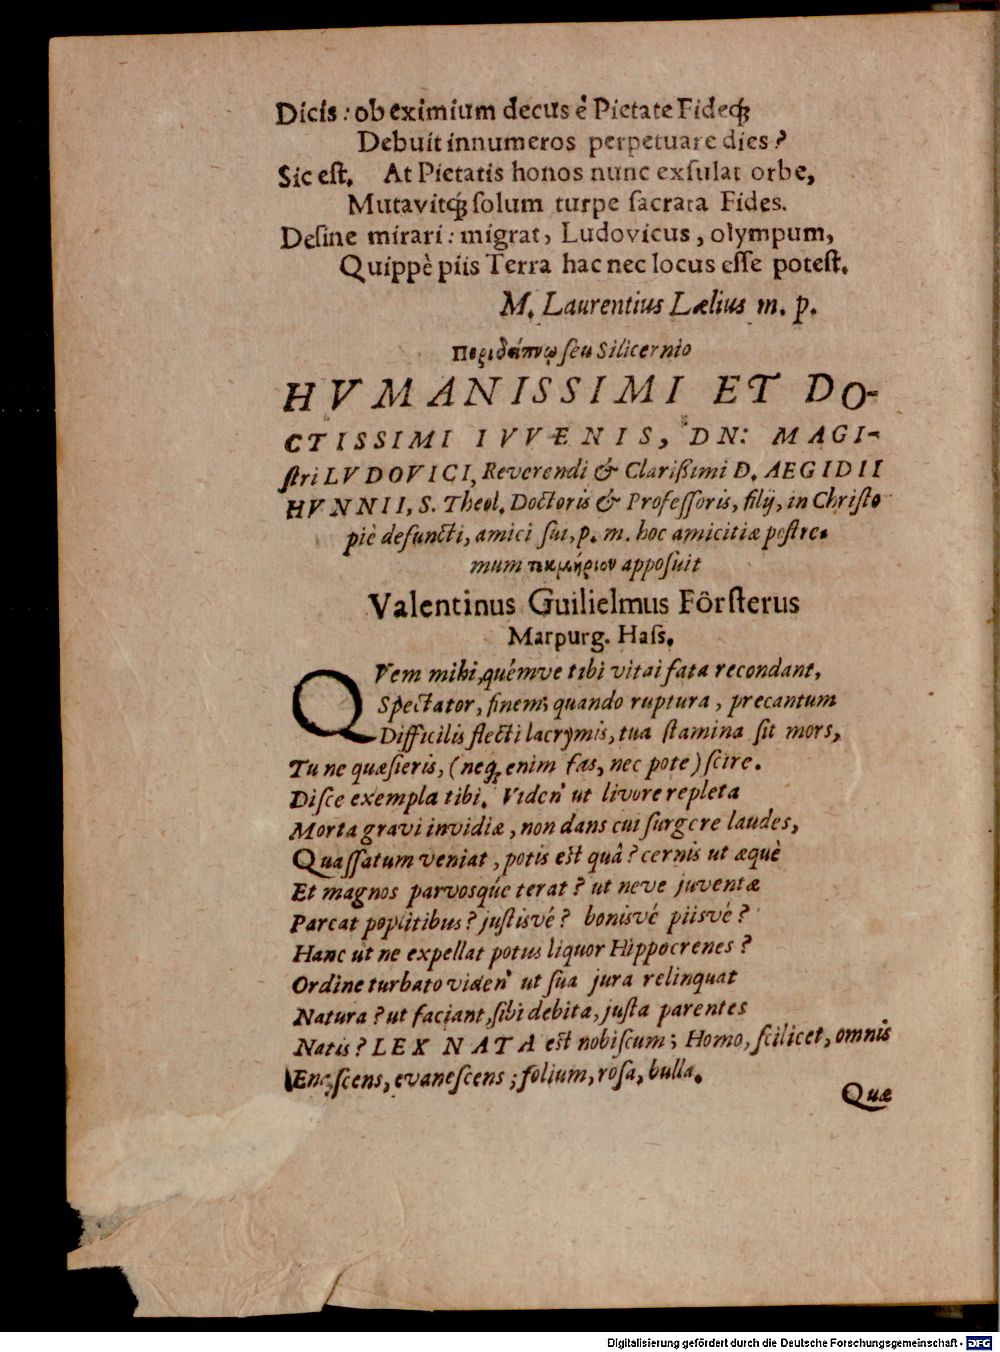 Dicis: ob eximium decus è Pietate Fideq́;
Debuit innumeros perpetuare dies?
Sic est. At Pietatis honos nunc exsulat orbe,
Mutavitq́; solum turpe sacrata Fides.
Desine mirari: migrat, Ludovicus, olympum,
Quippè piis Terra hac nec locus esse potest.
M. Laurentius Lælius m. p.
Περιδείπνῳ seu Silicernio
HVMANISSIMI ET DO-
CTISSIMI IVVENIS, DN: MAGI-
stri LVDOVICI, Reverendi & Clarißimi D. AEGIDII
HVNNII, S. Theol. Doctoris & Professoris, filij, in Christo
piè defuncti, amici sui, p. m. hoc amicitiæ postre-
mum τεκμήριον apposuit
Valentinus Guilielmus Fôrsterus
Marpurg. Hass.
QVem mihi, quémve tibi vitai fata recondant,
Spectator, finem; quando ruptura, precantum
Difficilis flecti lacrymis, tua stamina sit mors,
Tu ne quæsieris, (neq; enim fas, nec pote) scire.
Disce exempla tibi. Viden' ut livore repleta
Morta gravi invidiæ, non dans cui surgere laudes,
Quassatum veniat, potis est quâ? cernis ut æquè
Et magnos parvosqúe terat? ut neve juventæ
Parcat poplitibus? justisvé? bonisvé piisvé?
Hanc ut ne expellat potus liquor Hippocrenes?
Ordine turbato viden' ut sua jura relinquat
Natura? ut faciant, sibi debita, justa parentes
Natis? LEX NATA est nobiscum; Homo, scilicet, omnis
Enascens, evanescens; folium, rosa, bulla.
Quæ
Digitalisierung gefördert durch die Deutsche Forschungsgemeinschaft - DFG